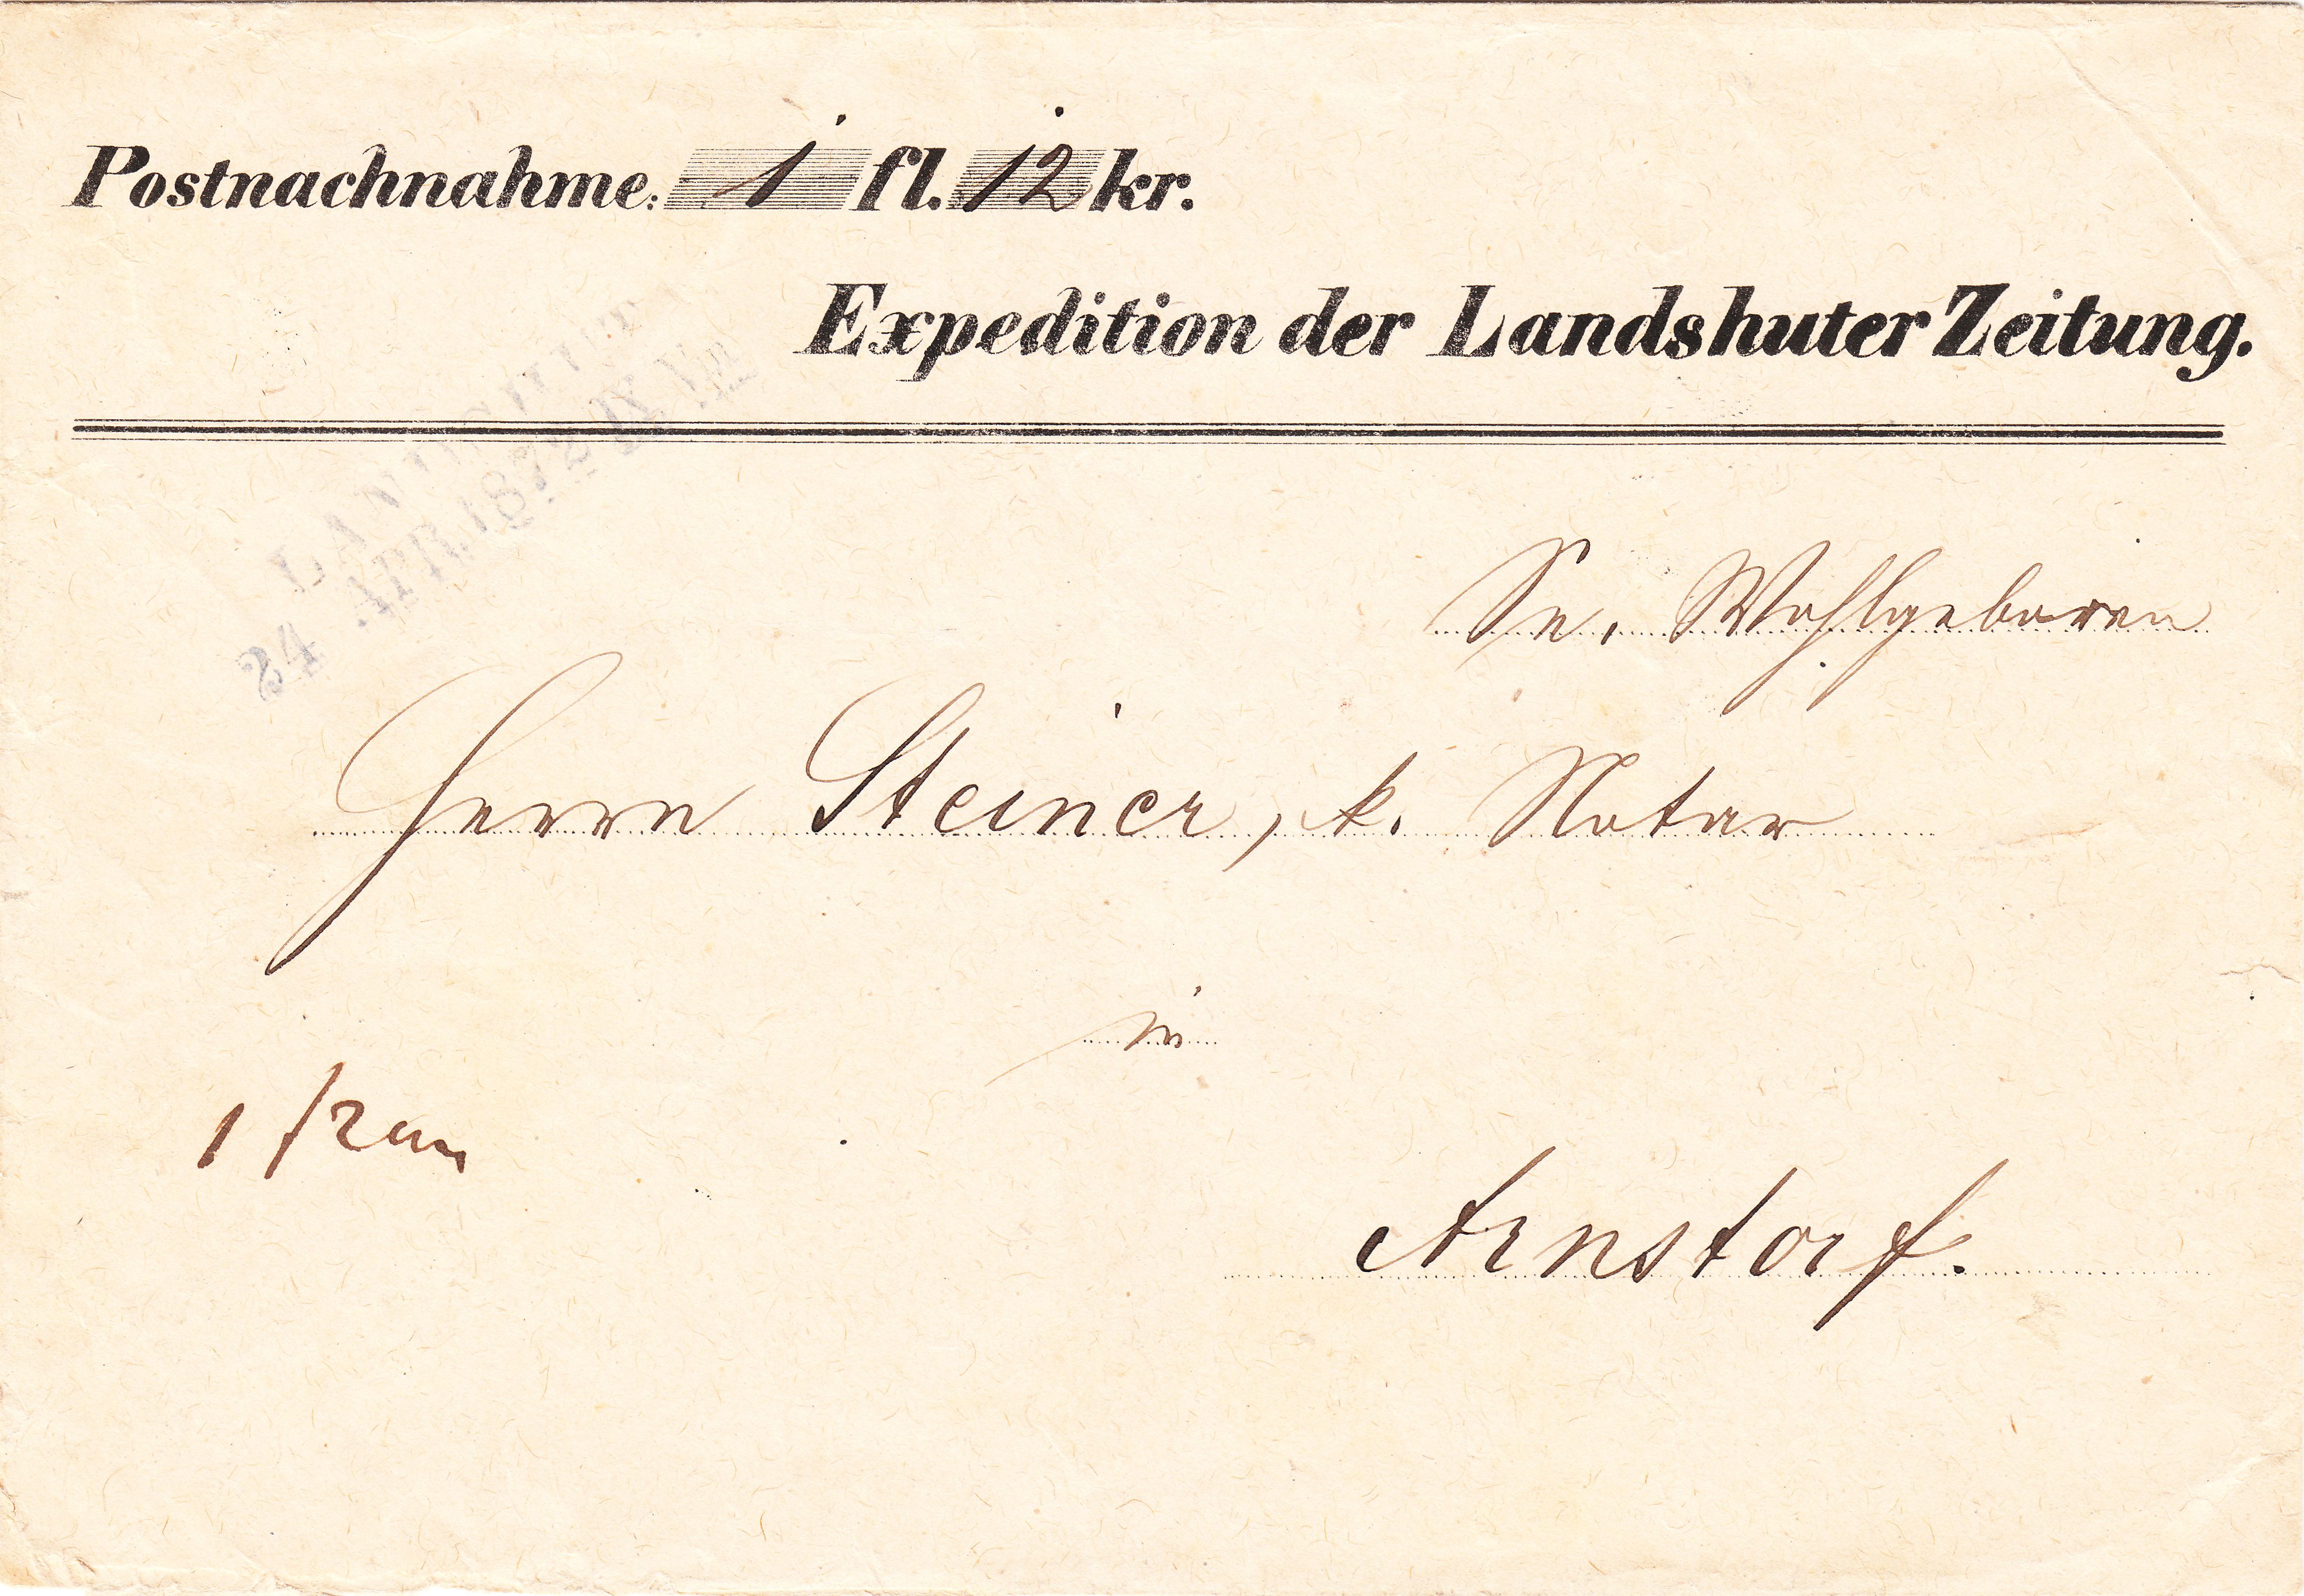 Postnachnahme: 1 fl. 12 kr.
Expedition der Landshuter Zeitung.
LANDSHUT
24 APR. 187
Sr. Wohlgeboren
Herrn Steiner, k. Notar
in
Arnstorf.